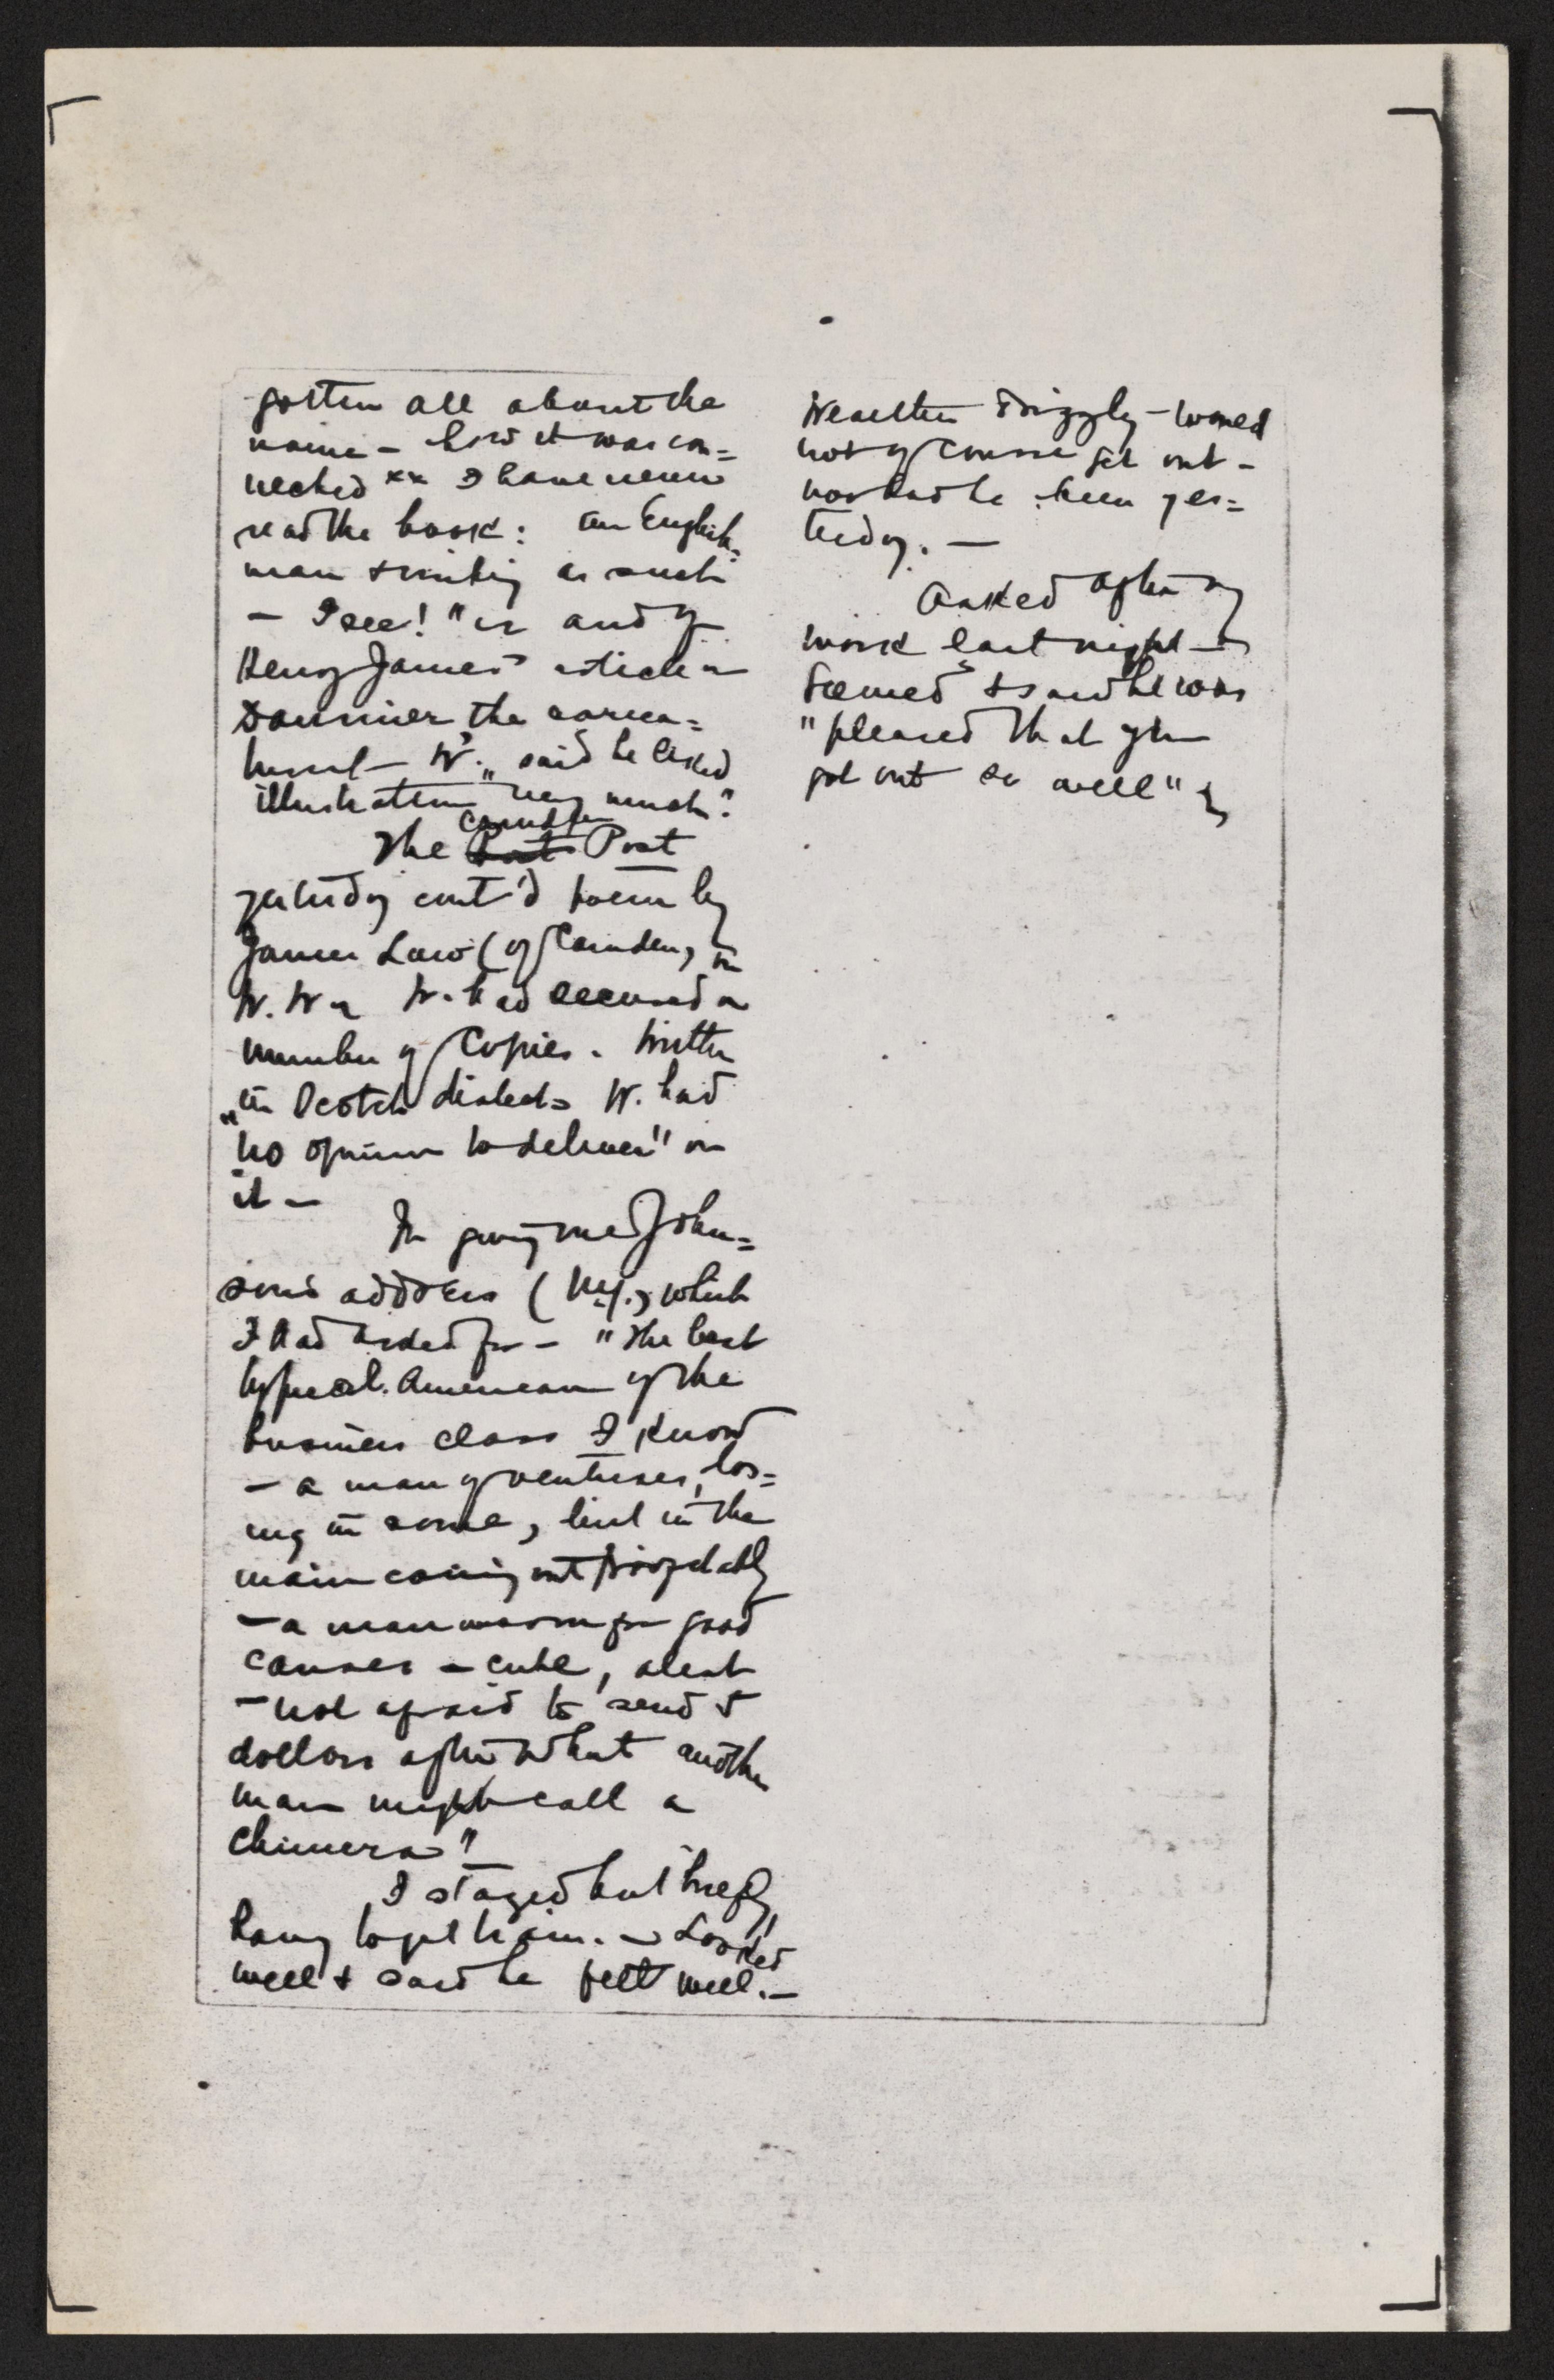 gotten all about the
name – how it was con=
nected xx I have never
read the book: an English=
man writing as such
– I see!" 
Henry James' article on
Daumier the carica=
turist – W. said he liked
illustrations "very much."
The Camden Post
yesterday cont'd poem by
James Law (of Camden) on
W. W. W. had secured a
number of copies. Written
in Scotch dialect = W. had
"no opinion to deliver" on
it –
In giving me John=
son's address (N.Y.) which
I had asked for – "The best
typical American of the
business class I know
– a man of ventures, los=
ing in some, but in the
main coming out profitably
– a man warm for good
causes – cute, alert
– not afraid to send
dollars after what another
man might call a
chimera"
I stayed but briefly,
having to get train. – Looked
well & said he felt well. –
Weather drizzly – would
not of course get out –
nor had he been yes=
terday. –
Asked after my
work last night –
seemed & said he was
"pleased that you
got out so well"